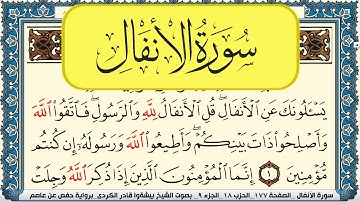 سُورَةُ الأَنفَالِ
يَسْـَٔلُونَكَ عَنِ ٱلْأَنفَالِۖ قُلِ ٱلْأَنفَالُ لِلَّهِ وَٱلرَّسُولِۖ فَٱتَّقُوا۟ ٱللَّهَ
وَأَصْلِحُوا۟ ذَاتَ بَيْنِكُمْۖ وَأَطِيعُوا۟ ٱللَّهَ وَرَسُولَهُۥٓ إِن كُنتُم
مُّؤْمِنِينَ ١ إِنَّمَا ٱلْمُؤْمِنُونَ ٱلَّذِينَ إِذَا ذُكِرَ ٱللَّهُ وَجِلَتْ
سورة الأنفال _ الصفحة ١٧٧ _ الحزب ١٨ _ الجزء ٩ _ بصوت الشيخ بيشةوا قادر الكردي _ برواية حفص عن عاصم